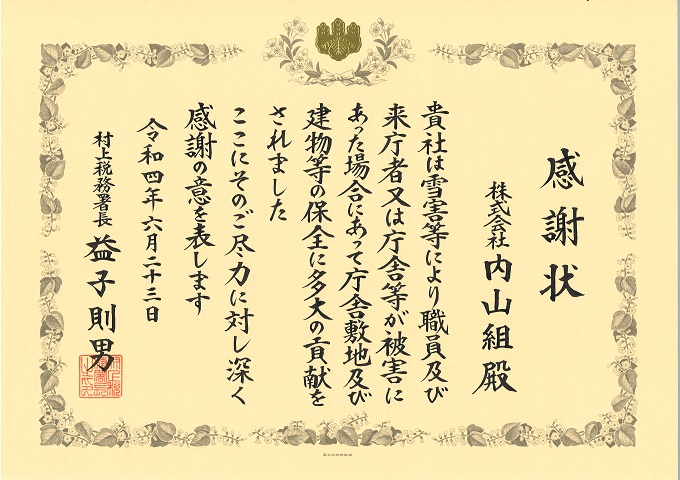 感謝状
株式会社 内山組 殿
貴社は雪害等により職員及び
来庁者又は庁舎等が被害に
あった場合にあって庁舎敷地及び
建物等の保全に多大の貢献を
されました
ここにそのご尽力に対し深く
感謝の意を表します
令和四年六月二十三日
村上税務署長 益子則男